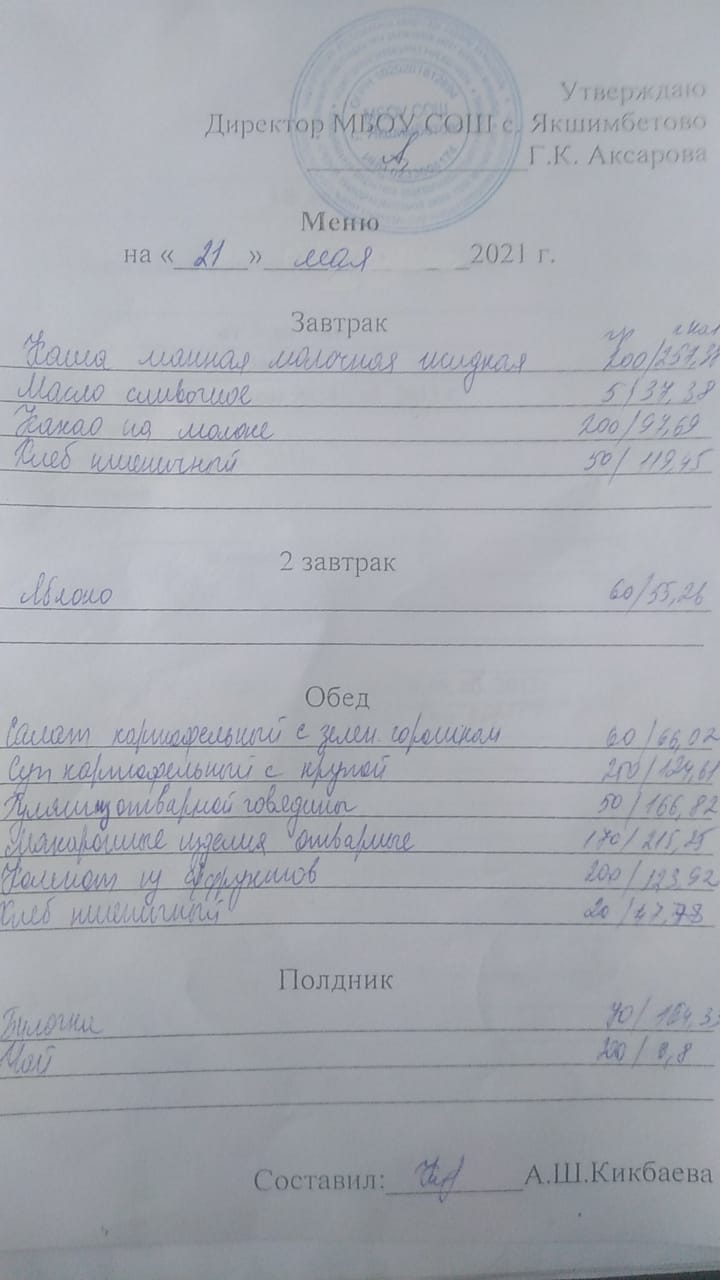 Утверждаю
Директор МБОУ СОШ с. Якшимбетово
Г.К. Аксарова
МБОУ СОШ
Меню
на «21» мая 2021 г.
Завтрак
гр ккал
Каша манная молочная жидкая 200/257,
Масло сливочное 5/37,38
Какао на молоке 200/97,69
Хлеб пшеничный 50/119,45
2 завтрак
Яблоко 60/55,26
Обед
Салат картофельный с зелен. горошком 60/66,02
Суп картофельный с крупой 250/124,61
Гуляш из отварной говядины 50/166,82
Макаронные изделия отварные 170/215,25
Компот из с/фруктов 200/123,92
Хлеб пшеничный 20/47,78
Полдник
Булочка 70/164,33
Чай 200/0,8
Составил: А.Ш.Кикбаева